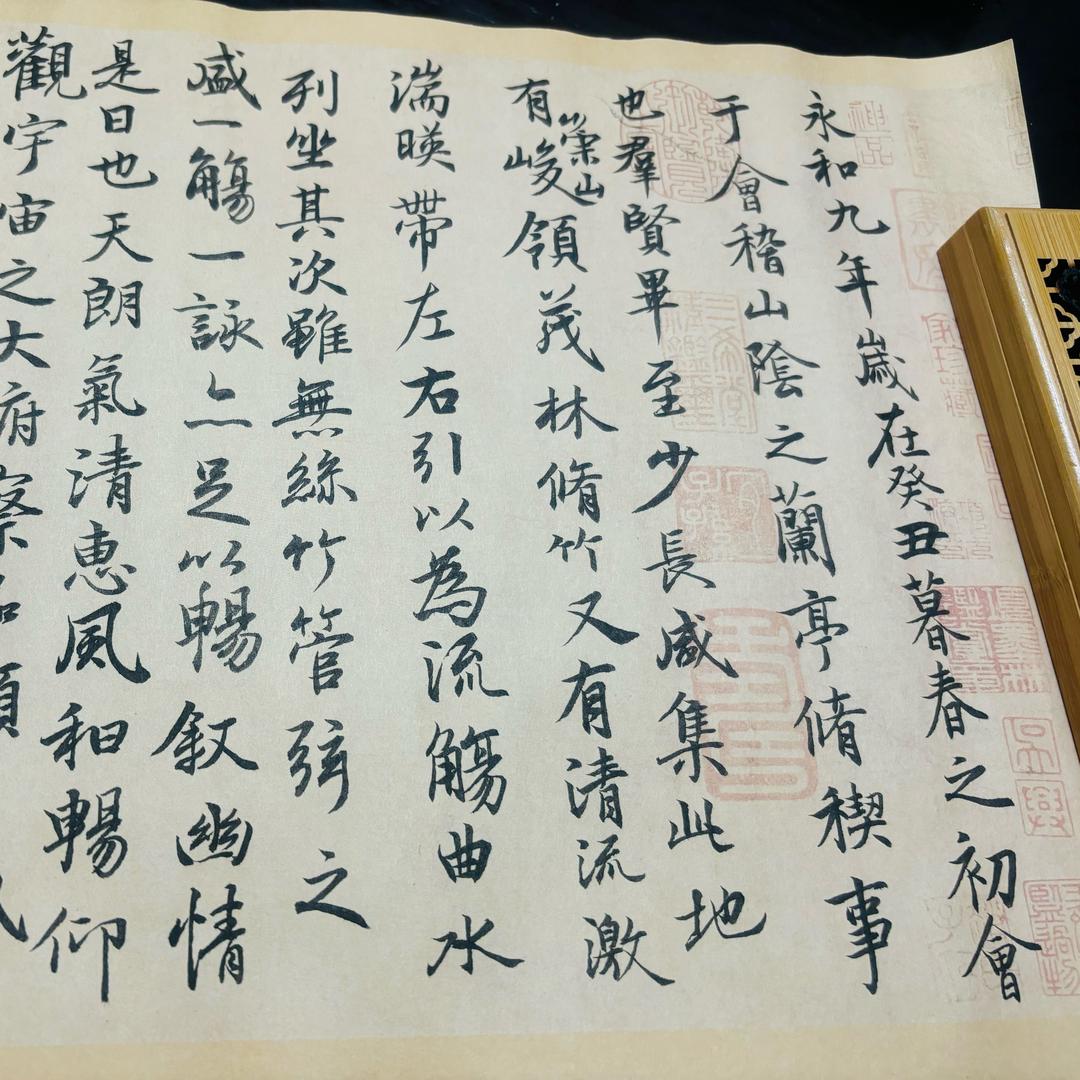 永和九年歲在癸丑暮春之初會
于會稽山陰之蘭亭脩稧事
也羣賢畢至少長咸集此地
有崇山峻領茂林脩竹又有清流激
湍暎帶左右引以為流觴曲水
列坐其次雖無絲竹管弦之
盛一觴一詠亦足以暢叙幽情
是日也天朗氣清惠風和暢仰
觀宇宙之大府察品類